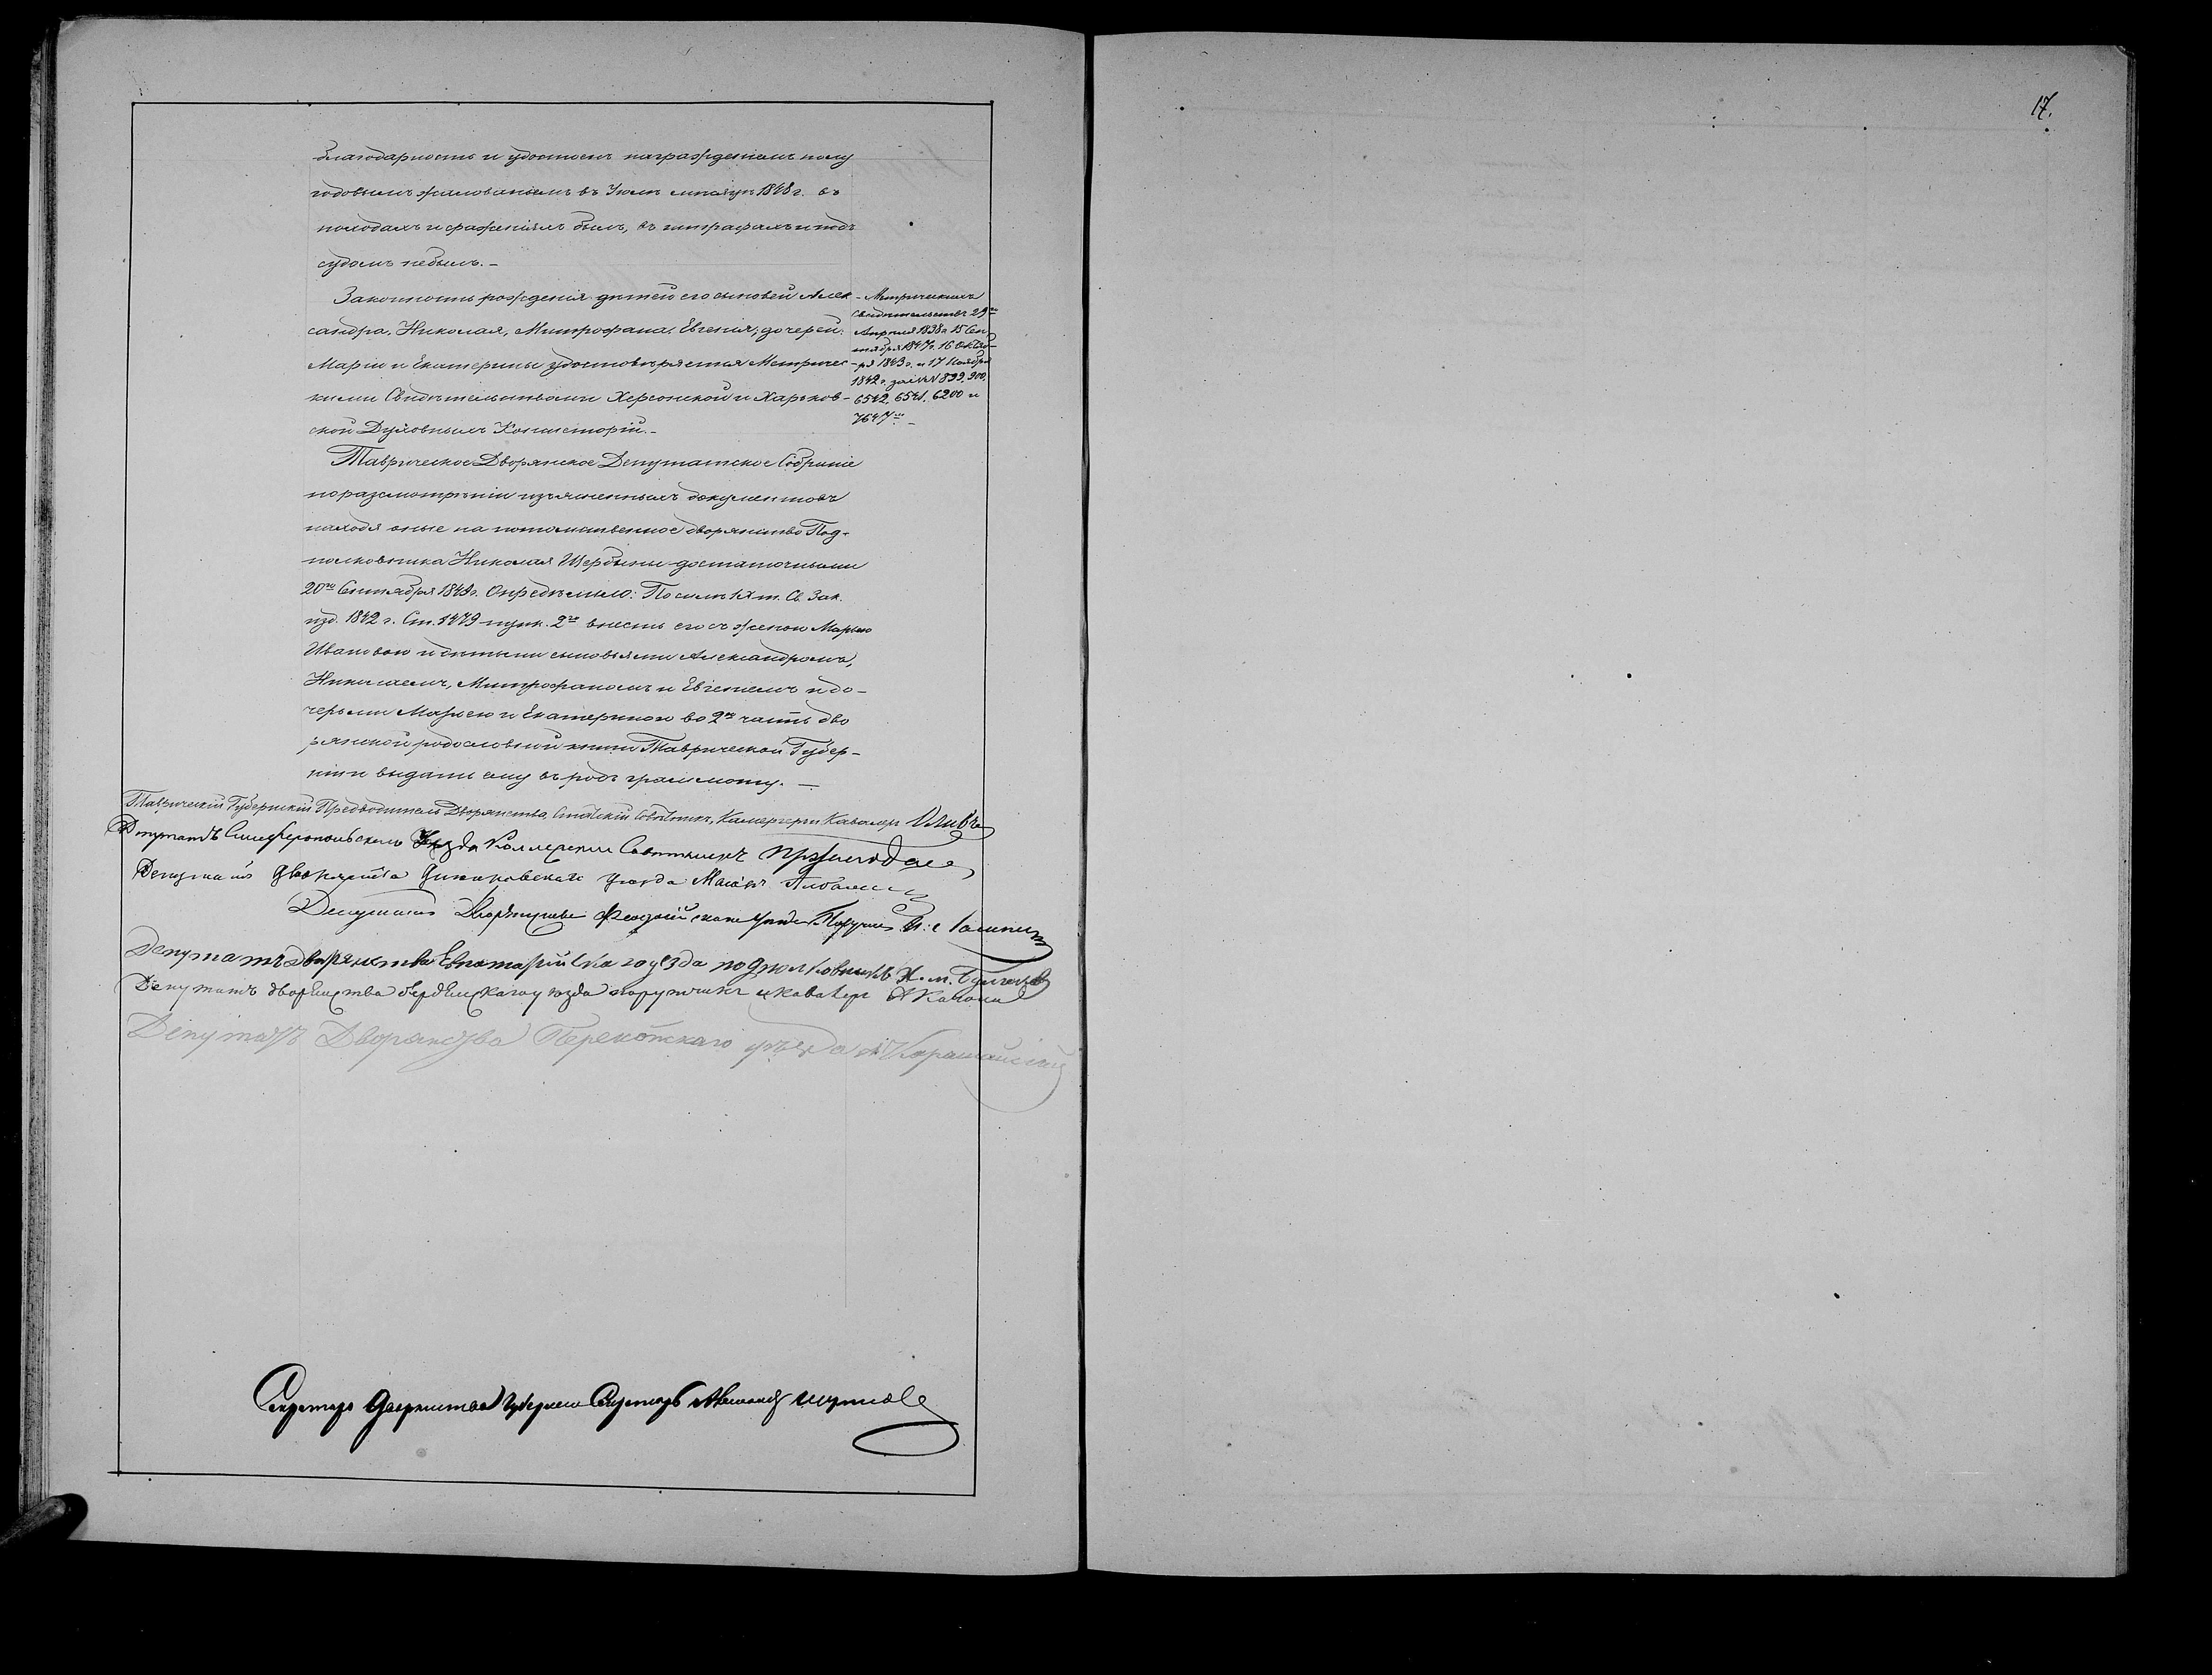 благодарность и удостоенъ награжденіемъ полу
годовымъ жалованьемъ въ Іюлѣ мѣсяцѣ 1848 г. въ
походахъ и сраженіяхъ былъ, въ штрафахъ и подъ
судомъ небылъ.-
Законность рожденія дѣтей его сыновей Алек
сандра, Николая, Митрофана, Евгенія; дочерей:
Маріи и Екатерины удостовѣряется Метричес
кими Свидѣтельствами Херсонской и Харьков-
ской Духовныхъ Консисторій.-
- Метрическихъ
Свидѣтельствъ 29го
Апрѣля 1838 г. 15 Сен
тября 1847 г. 16 Октяб-
ря 1843 г. и 17 Ноября
1842 г. за №№ 899, 900,
6542, 6541, 6200 и
7647мъ. -
Таврическое Дворянское Депутатское Собраніе
по разсмотрѣніи изъясненныхъ документовъ
находя оные на потомственное дворянство Под-
полковника Николая Щербины достаточными
20го Сентября 1849 г. Опредѣлило: По силѣ IX т. Св. Зак.
изд. 1842 г. Ст. 1479 пунк. 2го внесть его съ женою Марьею
Ивановою и дѣтьми сыновьями Александромъ,
Николаемъ, Митрофаномъ и Евгеніемъ и до-
черьми Марьею и Екатериною во 2ю часть дво
рянской родословной книги Таврической Губер-
ніи и выдать ему въ родъ грамоту. —
Таврическій Губернскій Предводитель Дворянства, Статскій Совѣтникъ, Камергеръ и Кавалеръ Оливъ
Депутатъ Симферопольскаго Уѣзда Коллежскій Совѣтникъ
Депутатъ Дворянства Днѣпровскаго уѣзда Маіоръ
Депутатъ Дворянства Феодосійскаго уѣзда Поручикъ
Депутатъ дворянства Евпаторійскаго уезда подполковникъ
Депутатъ дворянства бердянскаго уѣзда порутчикъ и кавалеръ
Депутатъ Дворянства Перекопскаго уѣзда
Секретарь Дворянства Губернскій Секретарь
17.